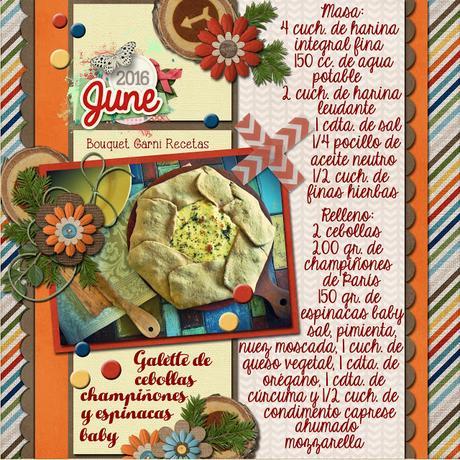 2016
June
Bouquet Garni Recetas
Galette de
cebollas
champiñones
y espinacas
baby
Masa:
4 cuch. de harina
integral fina
150 cc. de agua
potable
2 cuch. de harina
leudante
1 cdta. de sal
1/4 pocillo de
aceite neutro
1/2 cuch. de
finas hierbas
Relleno:
2 cebollas
200 gr. de
champiñones
de París
150 gr. de
espinacas baby
sal, pimienta,
nuez moscada, 1 cuch. de
queso vegetal, 1 cdta. de
orégano, 1 cdta. de
cúrcuma y 1/2 cuch. de
condimento caprese
ahumado
mozzarella